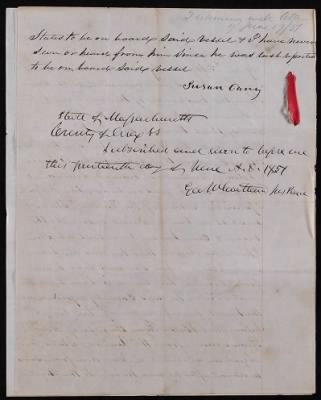 Stated to be on board said vessel & I have never
seen or heard from him since he was last reported
to be on board said vessel
Susan Cany
State of Massachusetts
County of Essex ss
Subscribed and sworn to before me
this fourteenth day of June A.D. 1851
Geo Wheatland Jus Peace